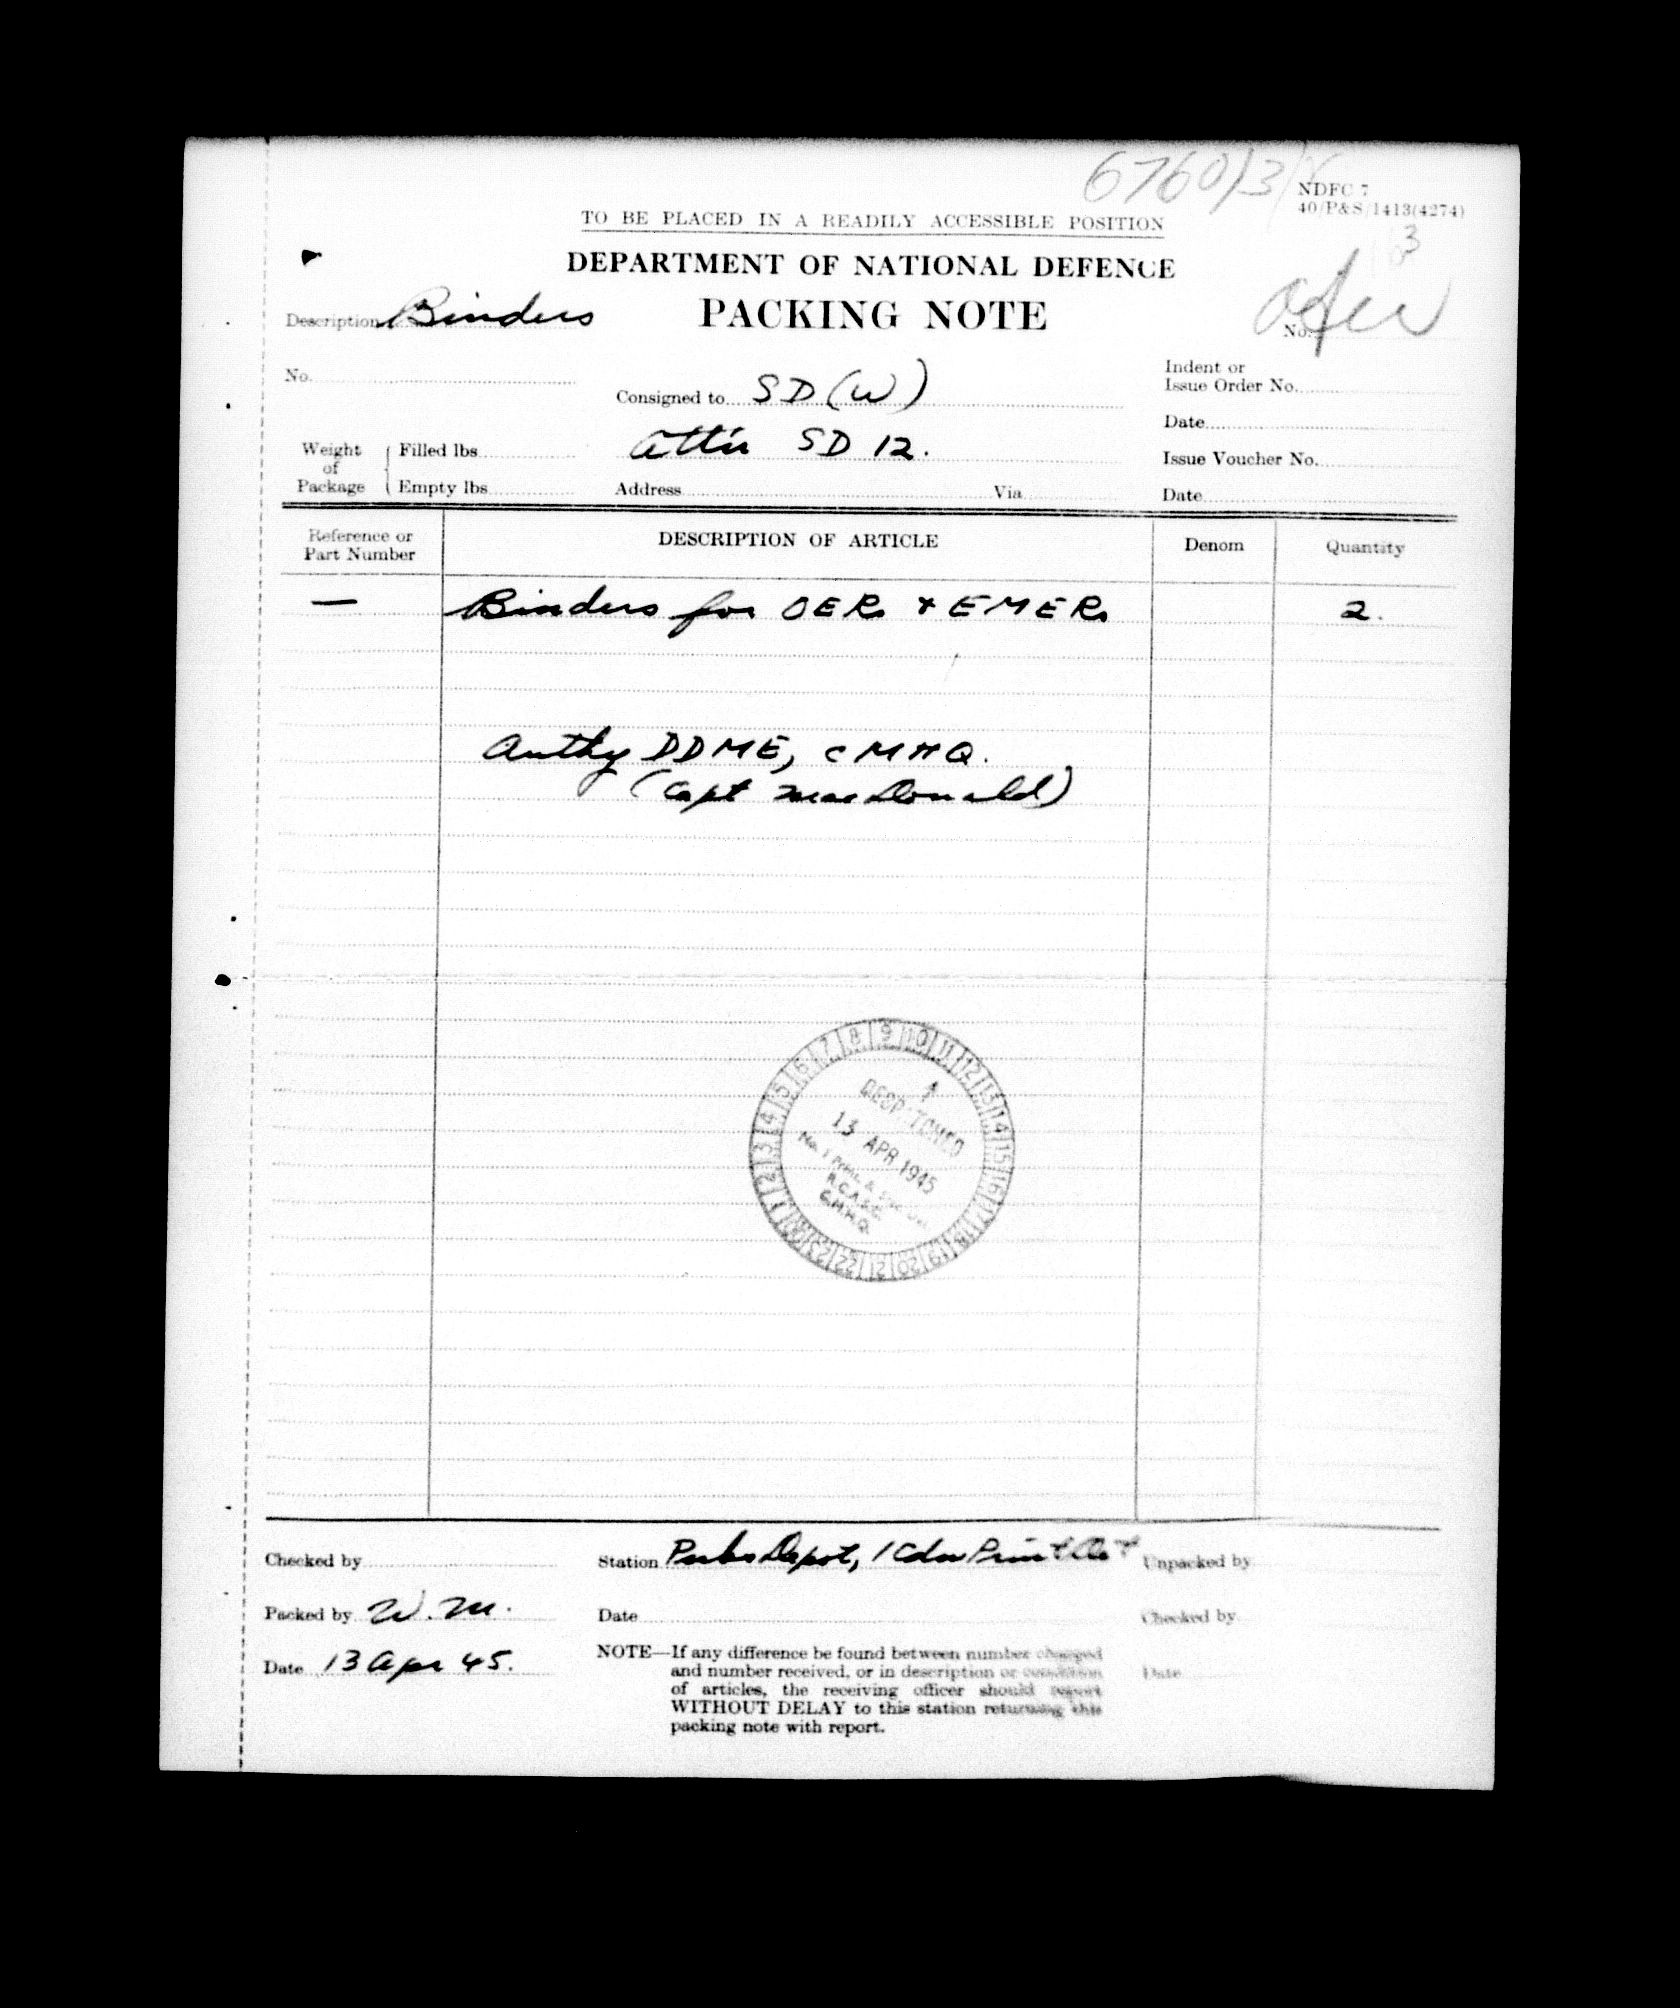 6760/3/
NDFC 7
40/P&S/1413(4274)
TO BE PLACED IN A READILY ACCESSIBLE POSITION
3
DEPARTMENT OF NATIONAL DEFENCE
Description Binders
PACKING NOTE
No.
No.
Consigned to SD (W)
Indent or
Issue Order No.
Date
Weight of Package
Filled lbs
Attn SD 12.
Issue Voucher No.
Empty lbs
Address
Via
Date
Reference or Part Number
DESCRIPTION OF ARTICLE
Denom
Quantity
— Binders for OERs + EMERs 2.
Authy DDME, CMHQ.
(Capt MacDonald)
1 2 3 4 5 6 7 8 9 10 11 12 13 14 15 16 17 18 19 20 21 22 23
DESPATCHED
13 APR 1945
No. 1
R.C.A.S.C.
C.M.H.Q.
Checked by
Station Pubs Depot, 1 Cdn Print
Unpacked by
Packed by W.M.
Date
Checked by
Date 13 Apr 45.
Date
NOTE—If any difference be found between number charged
and number received, or in description or condition
of articles, the receiving officer should report
WITHOUT DELAY to this station returning this
packing note with report.